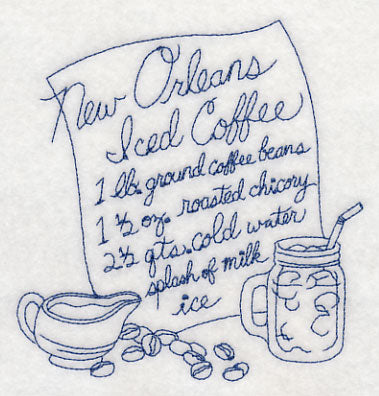 New Orleans
Iced Coffee
1 lb. ground coffee beans
1 1/2 oz. roasted chicory
2 1/2 qts. cold water
splash of milk
ice